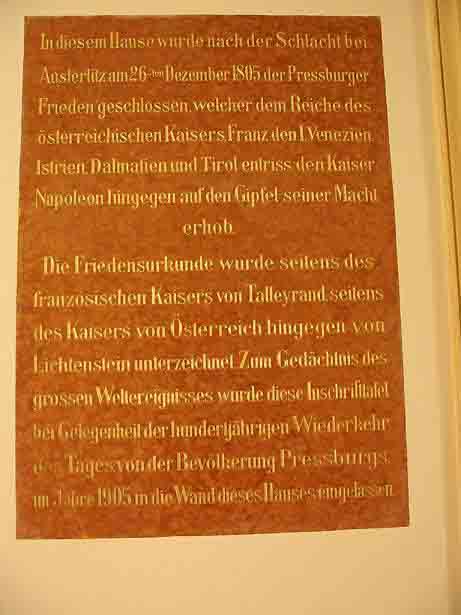 In diesem Hause wurde nach der Schlacht bei
Austerlitz am 26-ten Dezember 1805 der Pressburger
Frieden geschlossen, welcher dem Reiche des
österreichischen Kaisers Franz den I. Venezien,
Istrien, Dalmatien und Tirol entriss, den Kaiser
Napoleon hingegen auf den Gipfel seiner Macht
erhob.
Die Friedensurkunde wurde seitens des
französischen Kaisers von Talleyrand, seitens
des Kaisers von Österreich hingegen von
Lichtenstein unterzeichnet. Zum Gedächtnis des
grossen Weltereignisses wurde diese Inschrifttafel
bei Gelegenheit der hundertjährigen Wiederkehr
des Tages von der Bevölkerung Pressburgs,
im Jahre 1905 in die Wand dieses Hauses eingelassen.